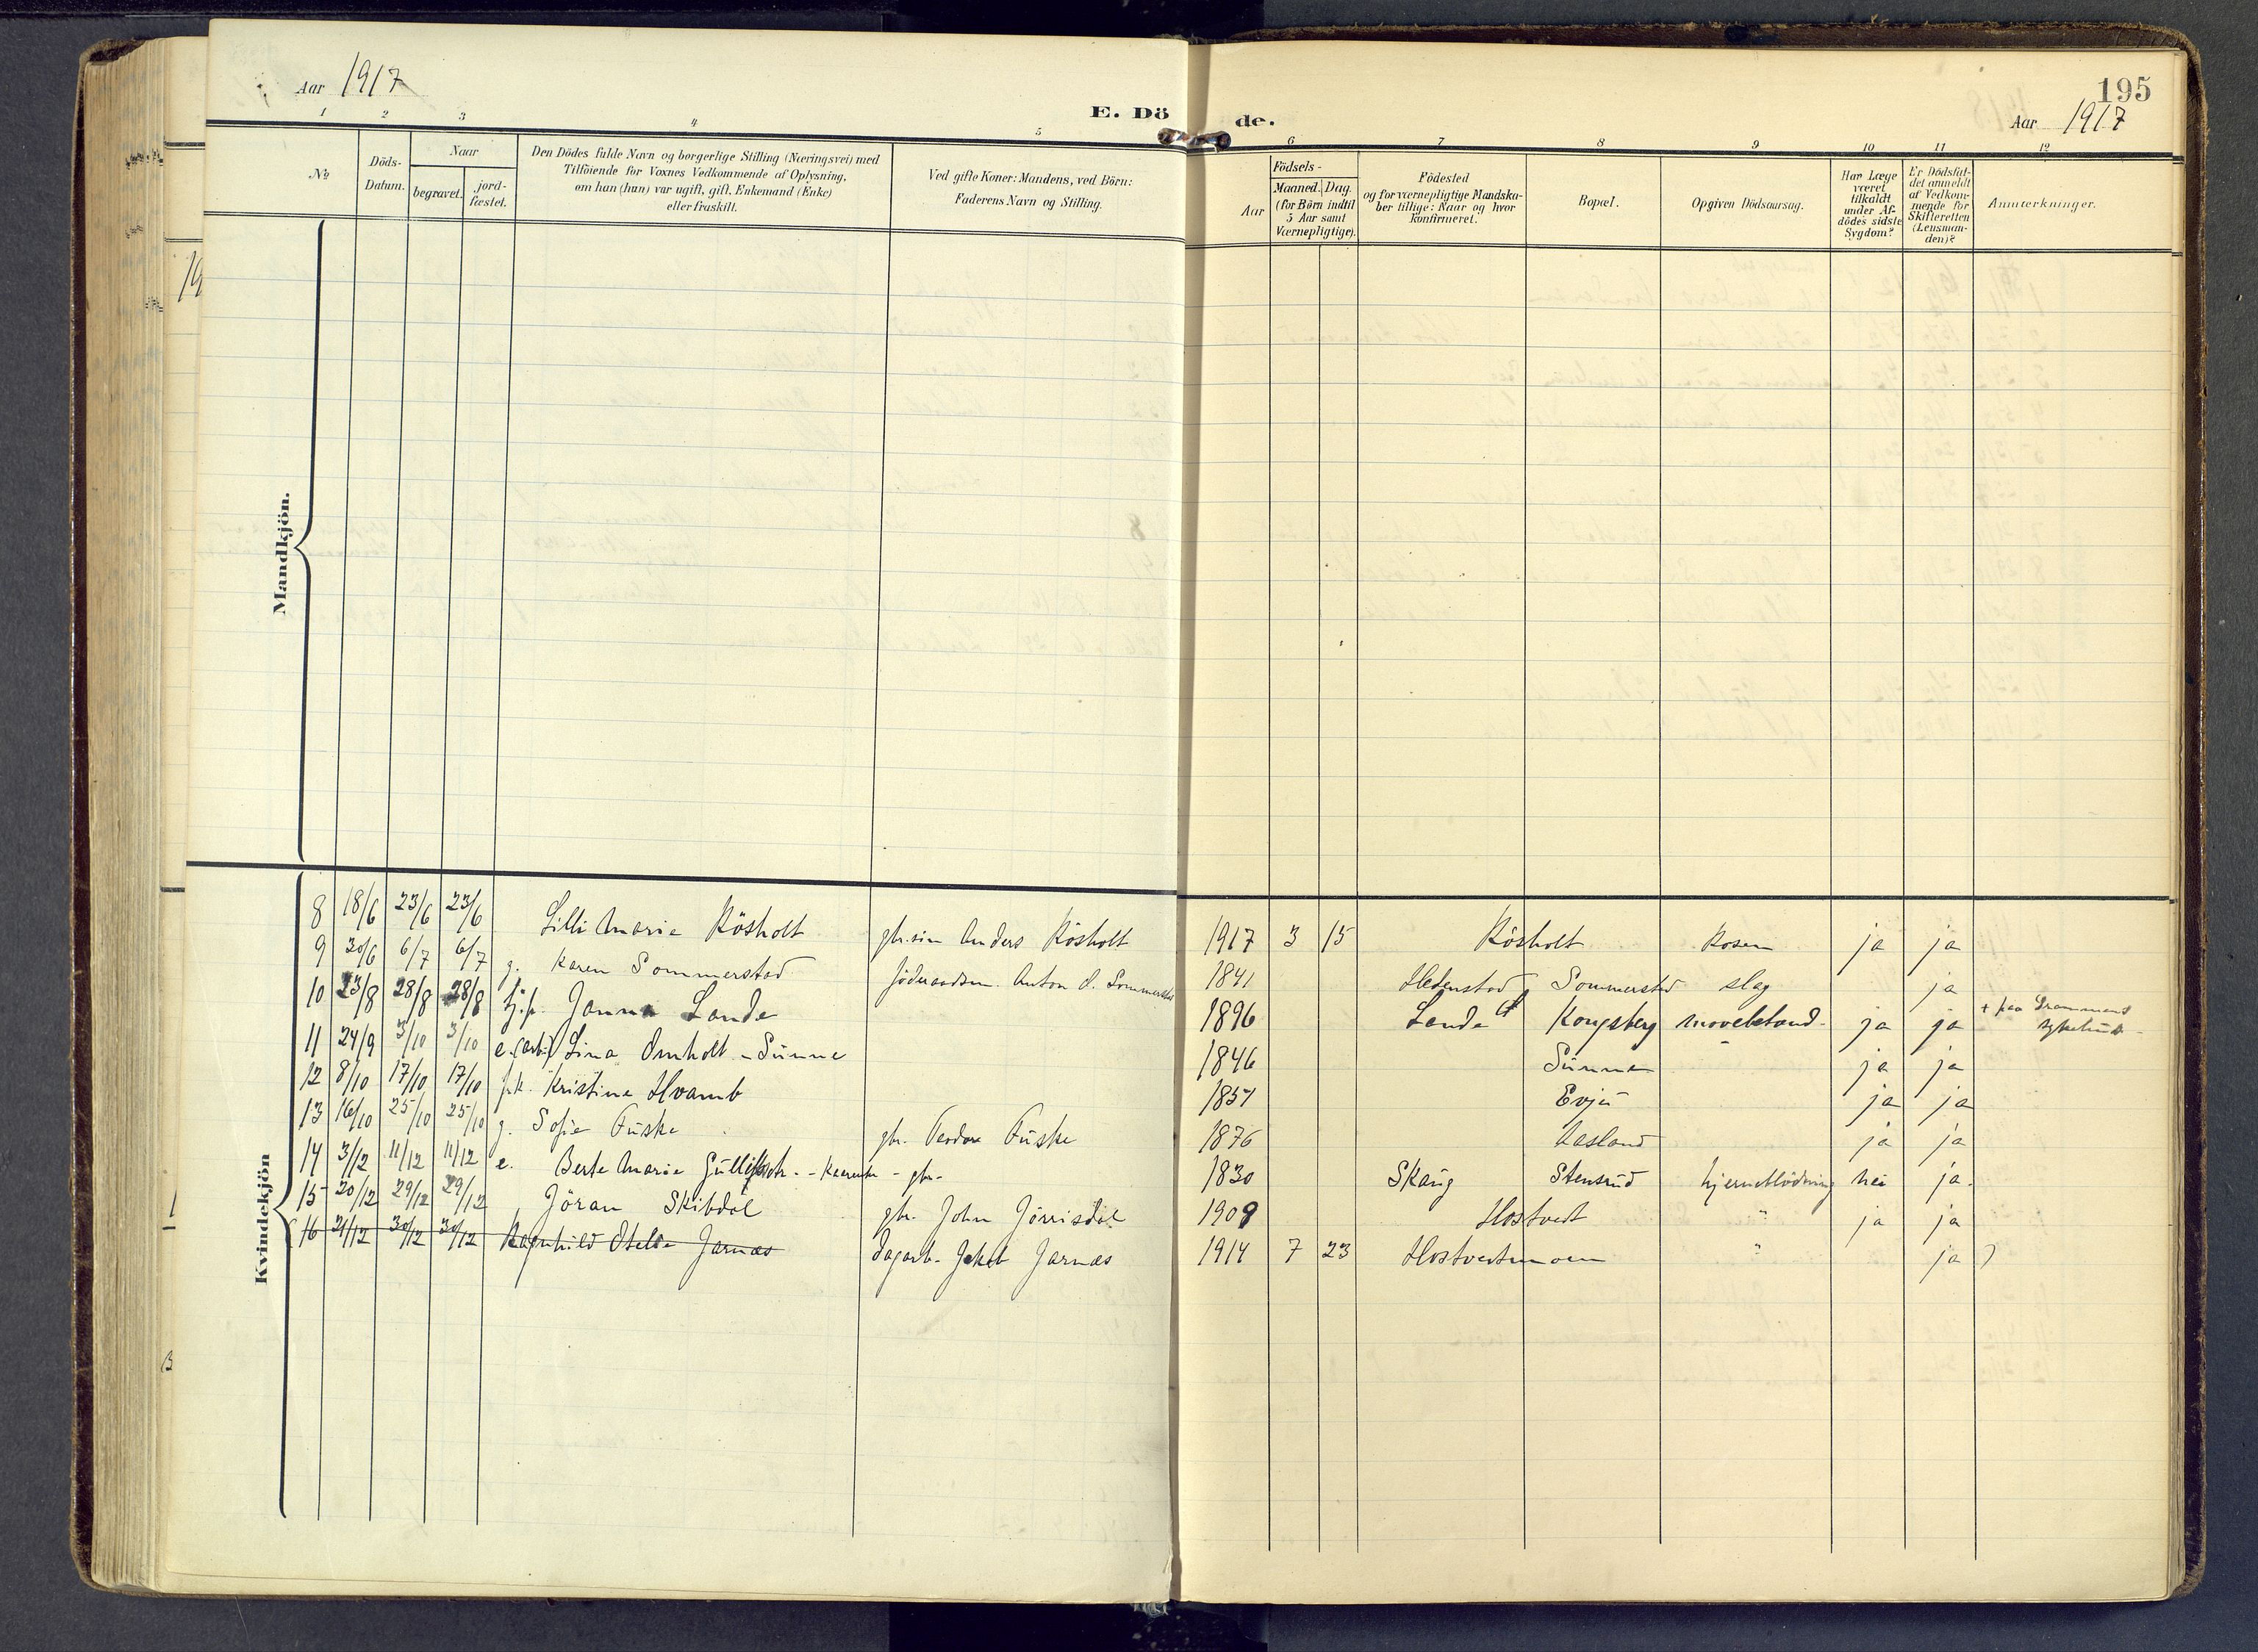 195
Aar 1917
E. Döde.
Aar 1917
1 2 3 4 5 6 7 8 9 10 11 12
№
Döds-Datum.
Naar
begravet.
jord-fæstet.
Den Dödes fulde Navn og borgerlige Stilling (Næringsvei) med
Tilföiende for Voxnes Vedkommende af Oplysning,
om han (hun) var ugift, gift, Enkemand (Enke)
eller fraskilt.
Ved gifte Koner: Mandens, ved Börn:
Faderens Navn og Stilling.
Födsels-
Aar
Maaned. Dag.
(for Börn indtil
5 Aar samt
Værnepligtige).
Födested
og for værnepligtige Mandska-
ber tillige: Naar og hvor
konfirmeret.
Bopæl.
Opgiven Dödsaarsag.
Har Læge
været
tilkaldt
under Af-
dödes sidste
Sygdom?
Er Dödsfal-
det anmeldt
af Vedkom-
mende for
Skifteretten
(Lensman-
den)?
Anmærkninger.
Mandkjön.
Kvindekjön
8 18/6 23/6 23/6 Lilli Marie Kösholt Anders Kösholt 1917 3 15 Kösholt ja ja
9 30/6 6/7 6/7 g. Karen Sommerstad Anton Sommerstad 1841 Hedenstad Sommerstad slag ja
10 23/8 28/8 28/8 tj.p. Lande 1896 Lande Kongsberg ja ja + paa Drammens sykehus
11 24/9 3/10 3/10 e. Lina Omholt - Sünne 1846 Sünne ja ja
12 8/10 17/10 17/10 Kristine Hvamb 1857 Evju ja ja
13 16/10 25/10 25/10 g. Sofie Fuske gbr. Fuske 1876 Aasland ja ja
14 3/12 11/12 11/12 e. Berte Marie - gbr. 1830 Skaug Stensrud hjerneblödning nei ja.
15 20/12 29/12 29/12 Jöran Skibdal gbr. John 1908 Hostvedt " ja ja
16 21/12 30/12 30/12 Ragnhild Jarnæs dagarb. Jakob Jarnæs 1914 7 23 Hostvedtmoen " ja